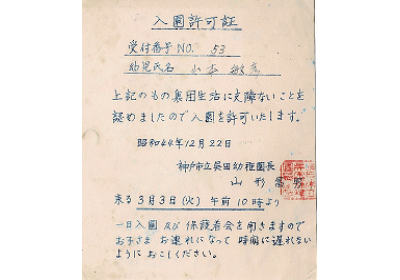 入園許可証
受付番号 NO. 53
幼児氏名 山本 敏彦
上記のもの集団生活に支障ないことを
認めましたので入園を許可いたします。
昭和44年12月22日
神戸市立呉田幼稚園長
山形
来る 3月3日(火) 午前10時より
一日入園及び保護者会を開きますので
お子さま お連れになって 時間に遅れない
ように おこしください。